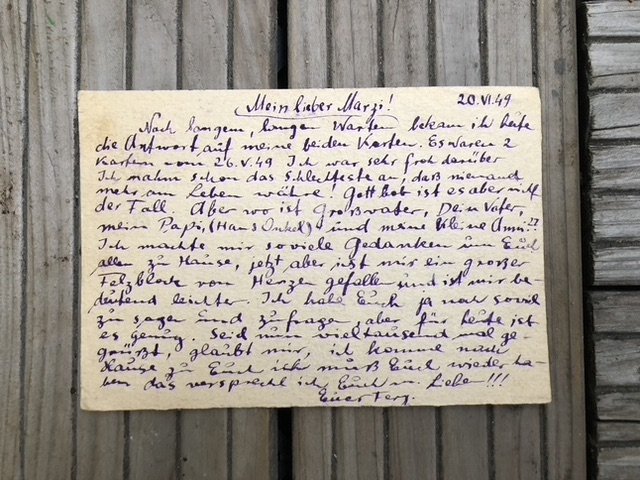 Mein lieber Marzi! 20.VI.49
Nach langem, langen Warten bekam ich heute
die Antwort auf meine beiden Karten. Es waren 2
Karten vom 26.V.49 Ich war sehr froh darüber
Ich nahm schon das Schlechteste an, daß niemand
mehr am Leben währe! Gott lob ist es aber nicht
der Fall. Aber wo ist Großvater, Dein Vater,
mein Papi, (Hans Onkel) und meine kleine Anni??
Ich machte mir soviele Gedanken um Euch
allen zu Hause, jetzt aber ist mir ein großer
Felzblock vom Herzen gefallen und ist mir be-
deutend leichter. Ich habe Euch ja noch soviel
zu sagen und zu fragen, aber für heute ist
es genung. Seid nun vieltausend mal ge-
grüßt, glaubt mir, ich komme nach
Hause zu Euch ich muß Euch wieder ha-
ben das versprecht ich Euch m. Liebe!!!
Euer